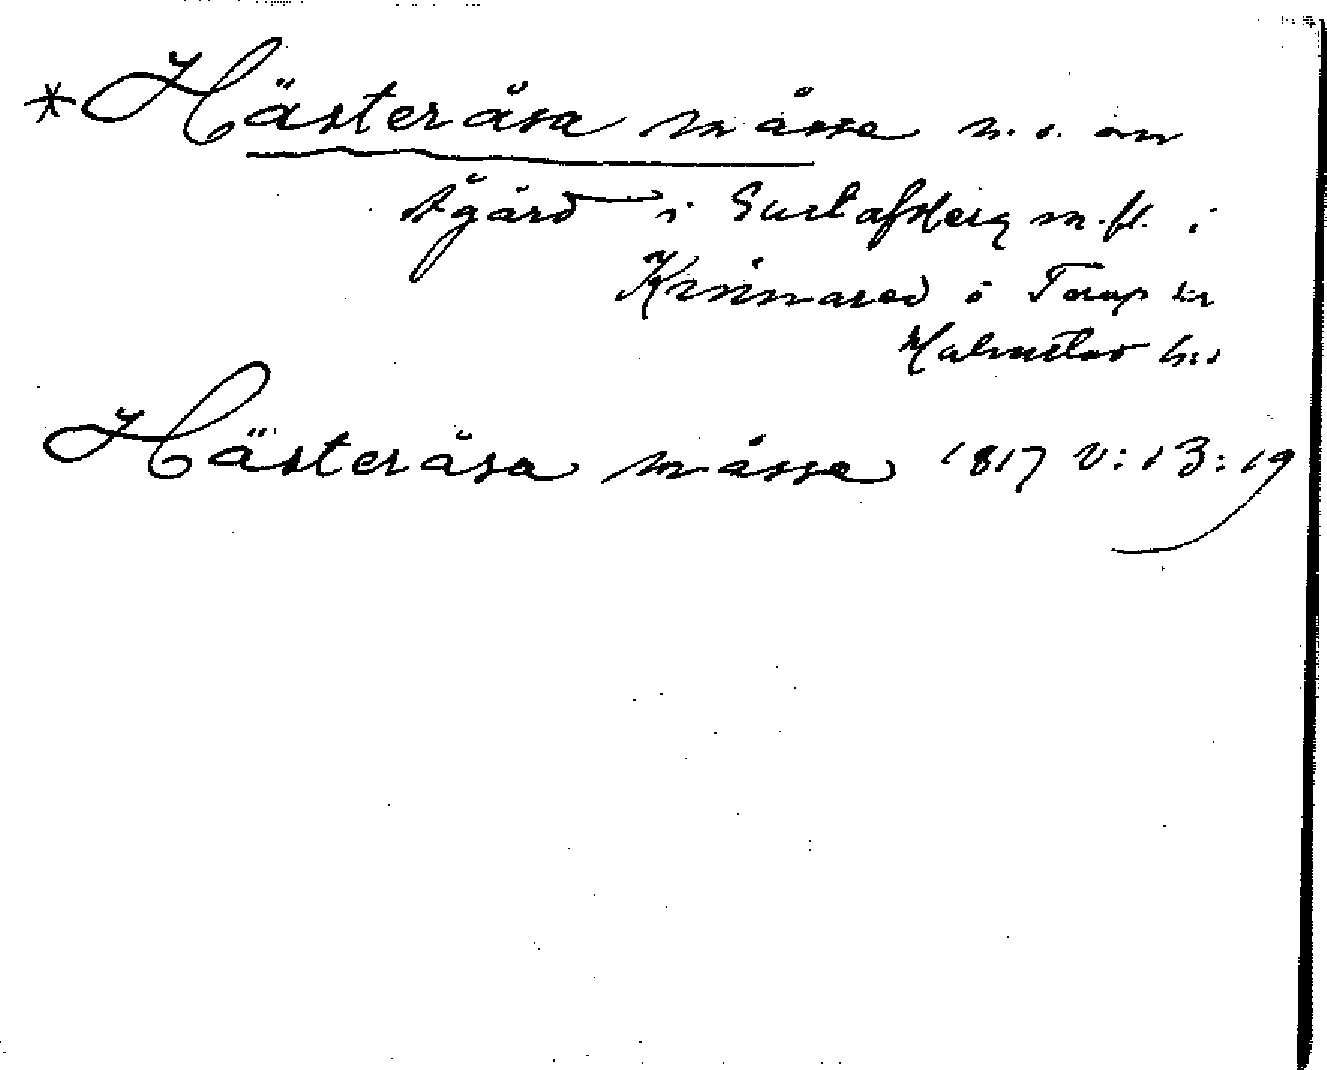 * Hästeråsa måsse n. o. om
Ågård i Gustafsberg m.fl. i
Kinnared i Torup sn
Halmstad hd
Hästeråsa måsse 1817 V:13:19